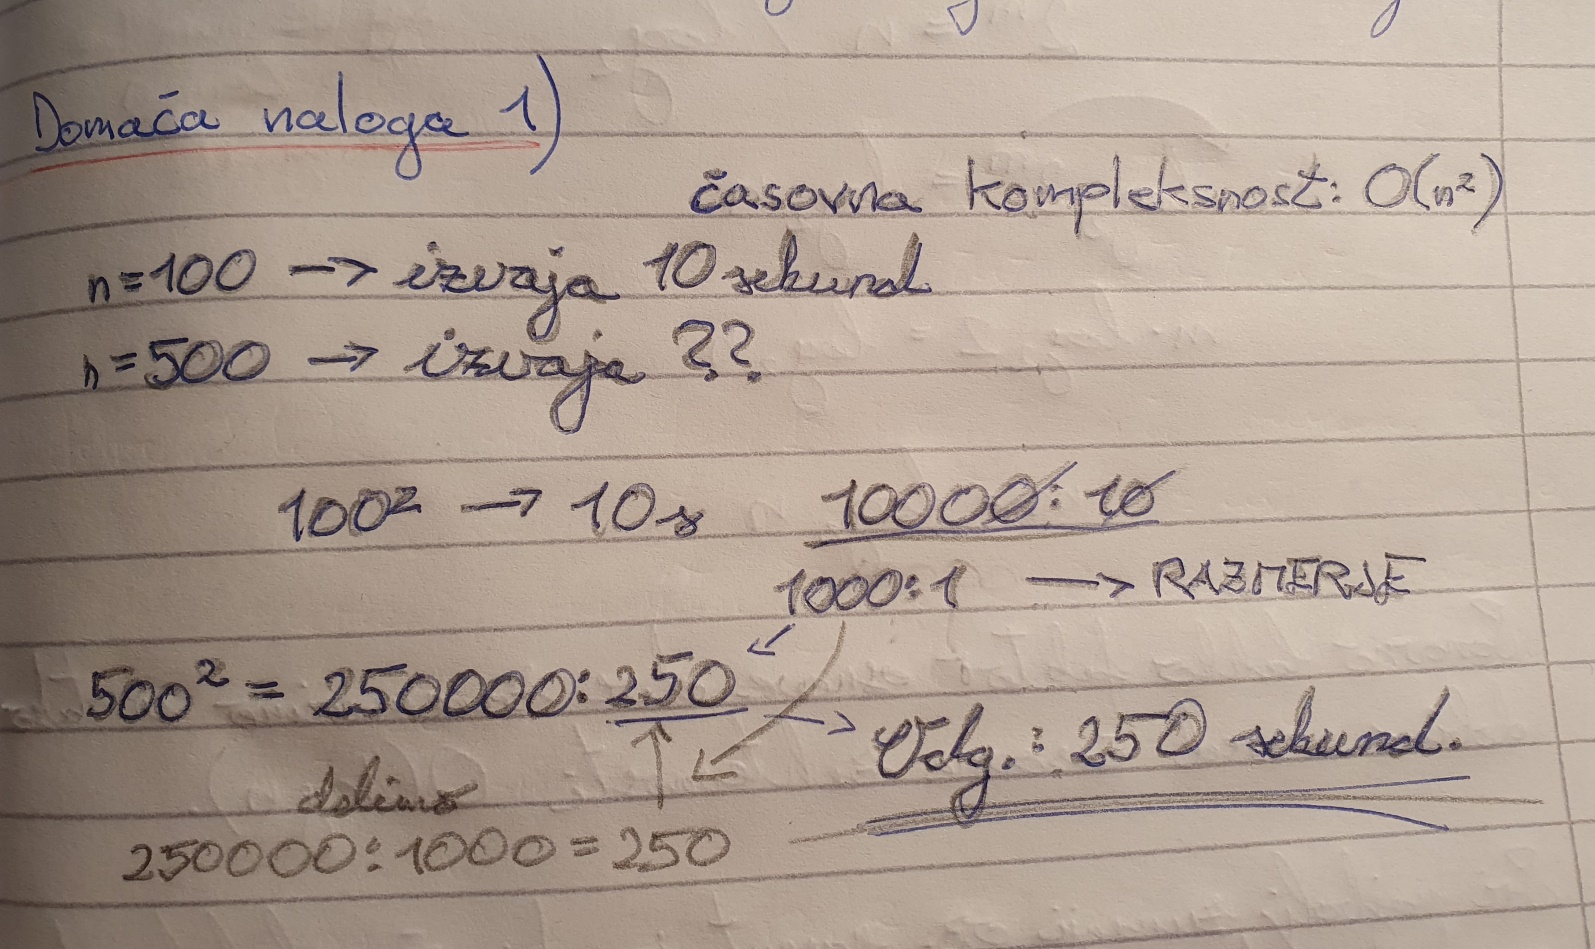 Domača naloga 1)
časovna kompleksnost: O(n²)
n=100 → izvaja 10 sekund
n=500 → izvaja ??
100² → 10s 10000:10
1000:1 → RAZMERJE
500² = 250000:250
→ Odg.: 250 sekund.
delimo
250000:1000=250